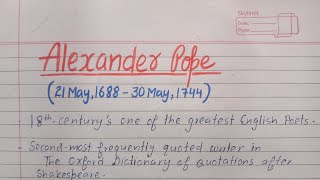 Skylimit
Date:
Page:
Alexander Pope
(21 May, 1688 - 30 May, 1744)
- 18th-century's one of the greatest English Poets.
- Second-most frequently quoted writer in
The Oxford Dictionary of Quotations after
Shakespeare.